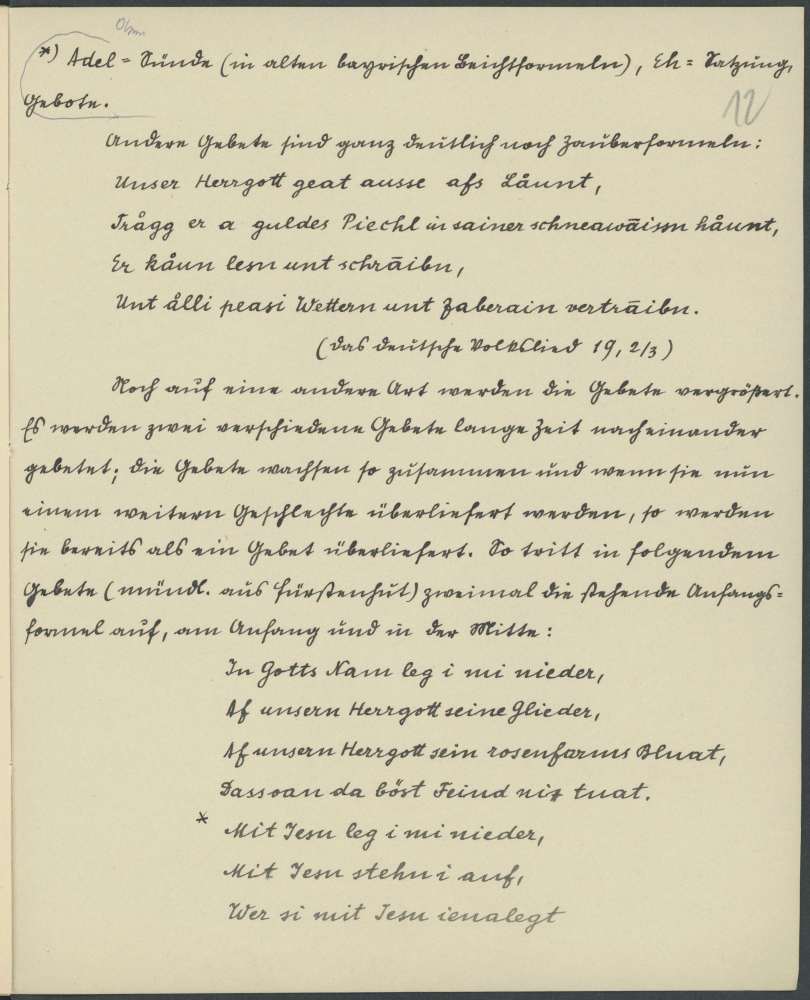 *) Adel = Sünde (in alten bayrischen Beichtformeln), Eh = Satzung,
Gebote.
12
Andere Gebete sind ganz deutlich noch Zauberformeln:
Unser Herrgott geat ausse afs Låunt,
Trågg er a guldes Piechl in sainer schneawāissn håunt,
Er kåun lesn unt schrāibn,
Unt ålli peasi Wettern unt Zaberain vertrāibn.
(Das deutsche Volkslied 19, 2/3)
Noch auf eine andere Art werden die Gebete vergrößert.
Es werden zwei verschiedene Gebete lange Zeit nacheinander
gebetet; die Gebete wachsen so zusammen und wenn sie nun
einem weitern Geschlechte überliefert werden, so werden
sie bereits als ein Gebet überliefert. So tritt in folgendem
Gebete (mündl. aus Fürstenhut) zweimal die stehende Anfangs=
formel auf, am Anfang und in der Mitte:
In Gotts Nam leg i mi nieder,
Af unsern Herrgott seine Glieder,
Af unsern Herrgott sein rosenfarms Bluat,
Dassoan da böst Feind nix tuat.
* Mit Jesu leg i mi nieder,
Mit Jesu stehn i auf,
Wer si mit Jesu ienalegt